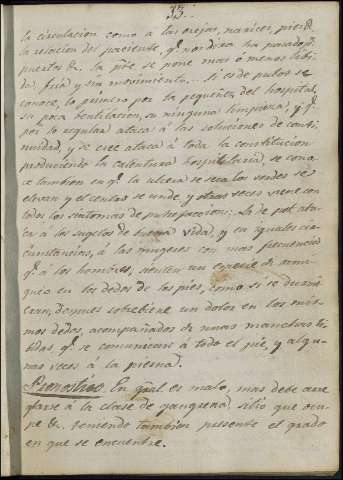 33.
la circulacion como á las orejas, narices, pies &.
la relacion del paciente, qe. nos dira ha pasado pr.
puertos &. la pte. se pone mas ó menos livi-
da, fria y sin movimiento. Si es de
conoce, lo primero por la pequeñez del hospital,
su poca bentilacion, su ninguna limpieza, y qe.
por lo regular ataca á las soluciones de conti-
nuidad, y se cree ataca á toda la constitucion
produciendo la calentura hospitalaria, se cono-
ce tambien en qe. la ulcera se seca los vordes se
elevan y el centro se unde, y otras veces viene con
todos los sintomas de putrefaccion: La de pot. ata-
ca á los sugetos de buena vida, y en iguales cir-
cunstancias, á las mugeres con mas frecuencia
qe. á los hombres, sienten un especie de
en los dedos de los pies, como si se
despues sobrebiene un dolor en los mis-
mos dedos, acompañados de unas manchas li-
bidas, qe. se comunican á todo el pie, y algu-
nas veces á la pierna.
Pronostico. En gral. es malo, mas debe arre-
glarse á la clase de gangrena, sitio que ocu-
pe &. teniendo tambien presente el grado
en que se encuentre.